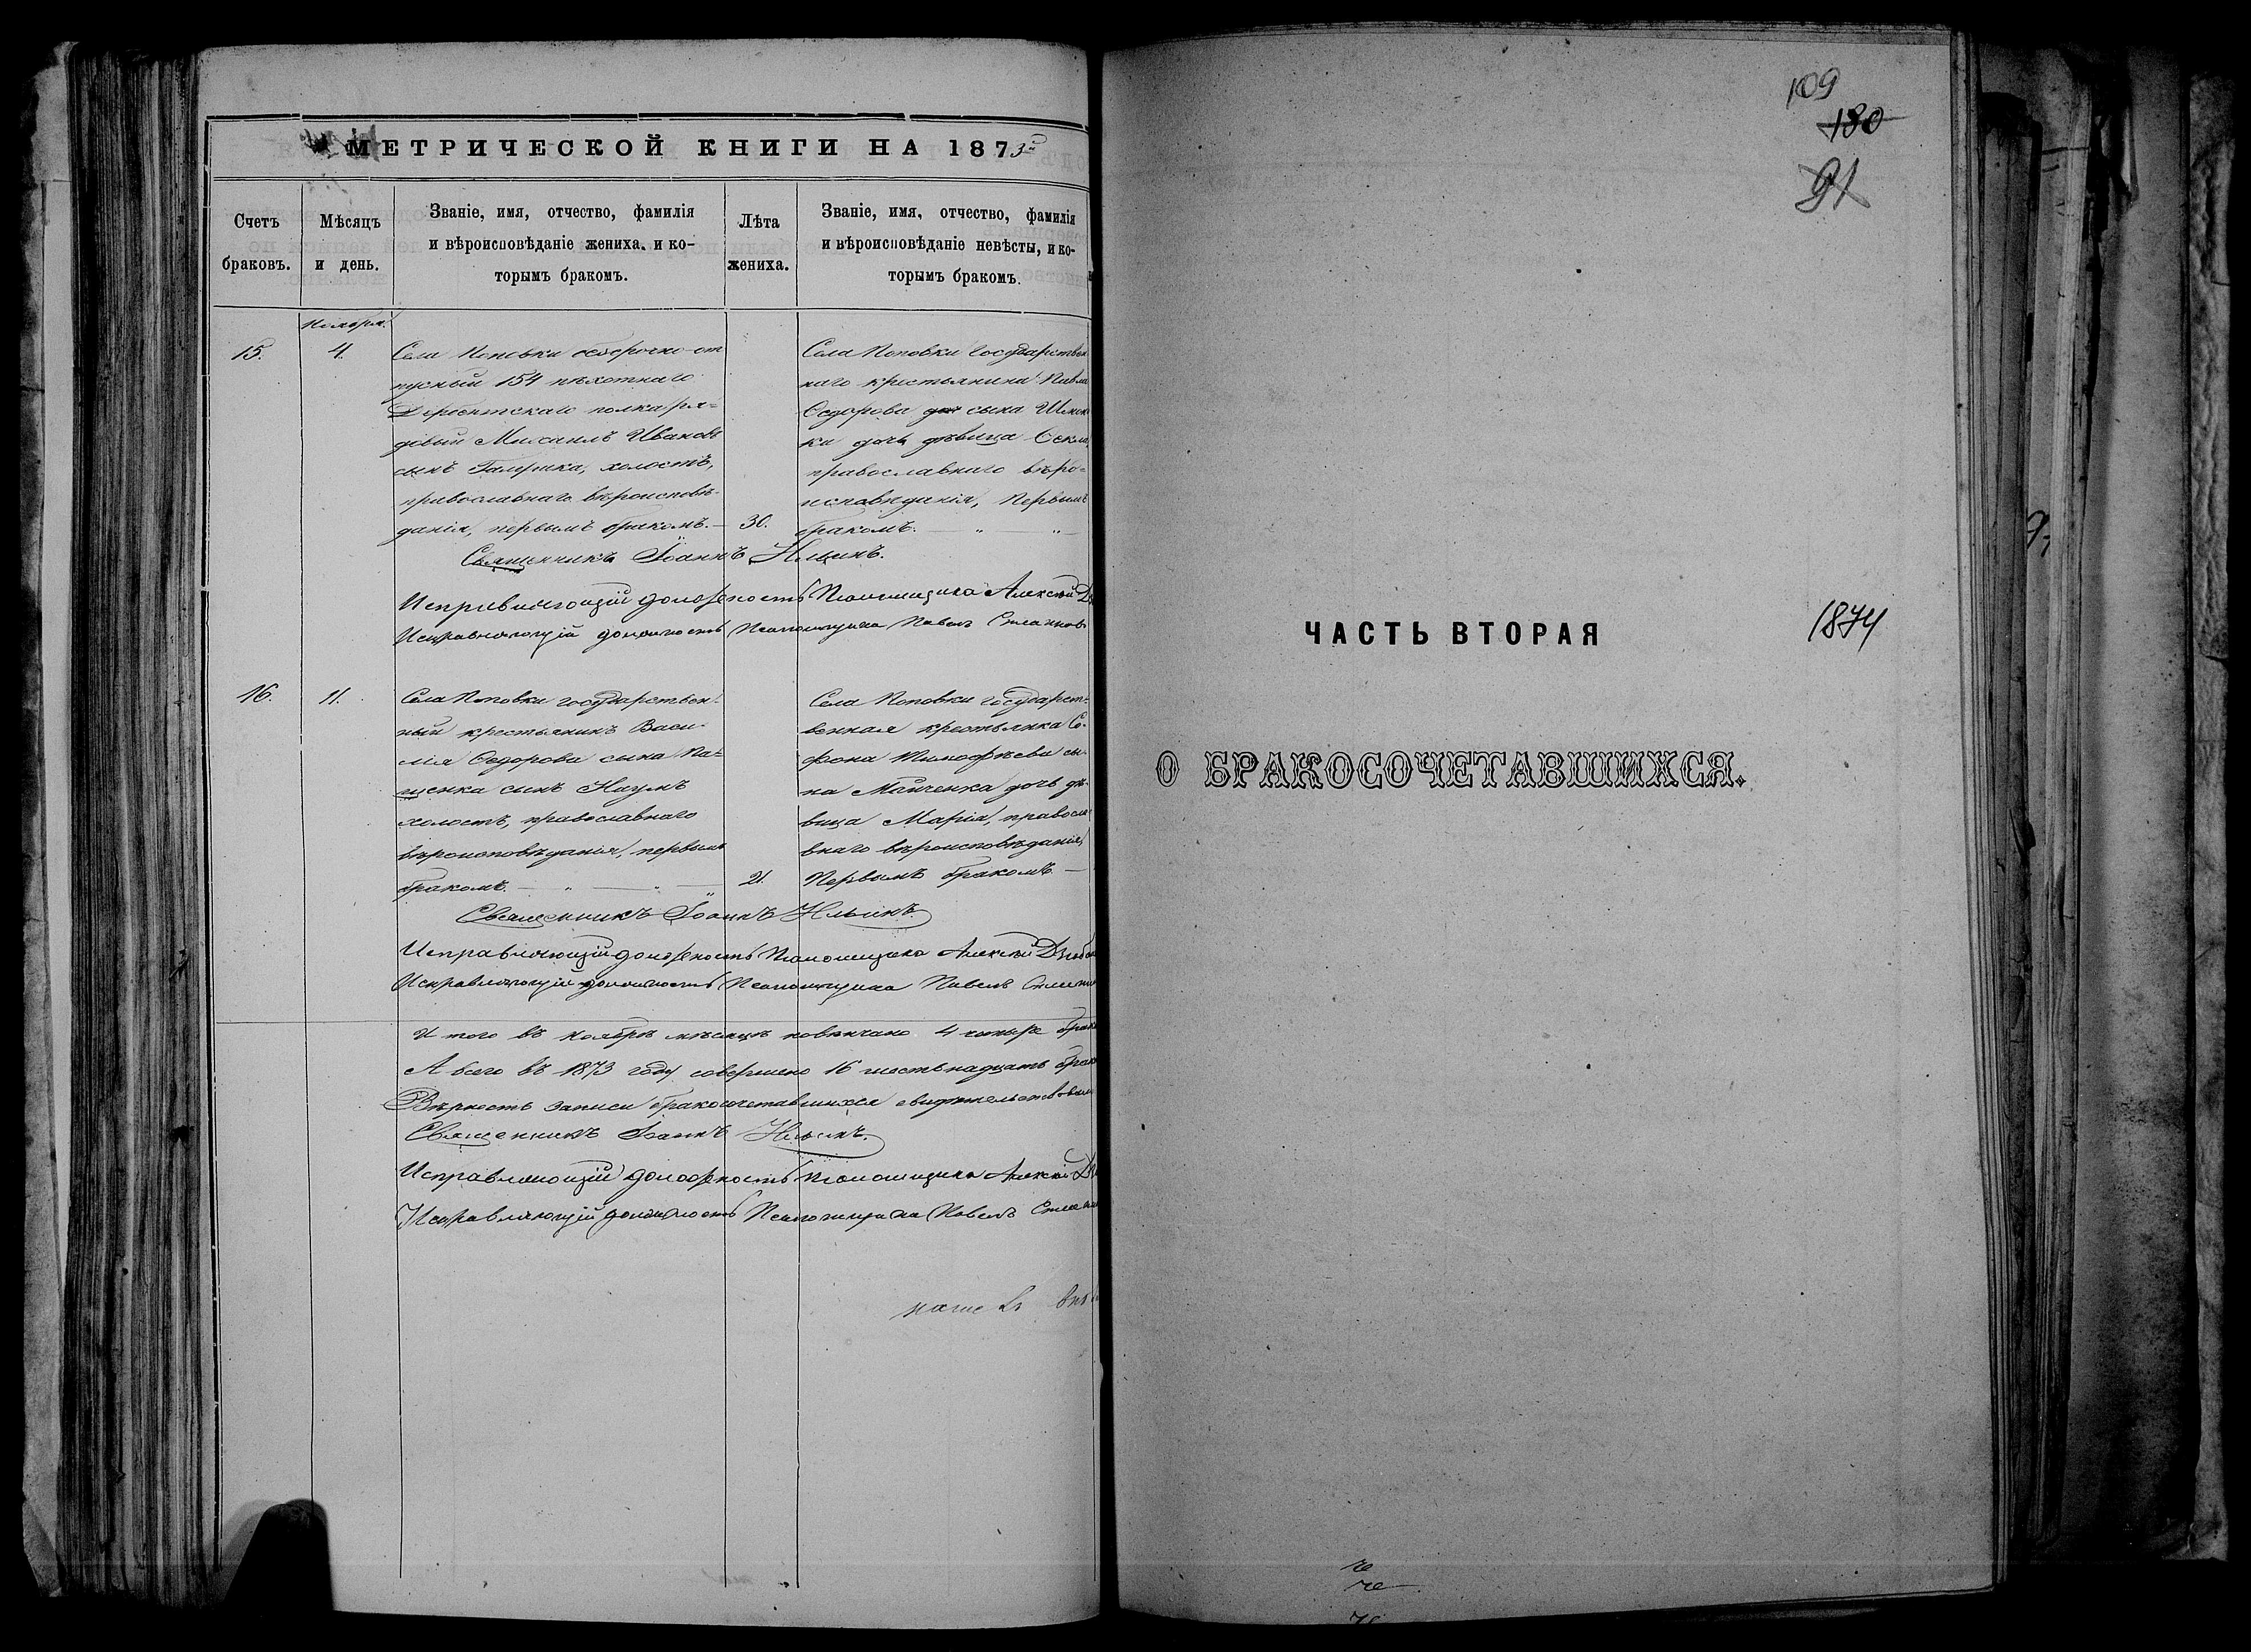 МЕТРИЧЕСКОЙ КНИГИ НА 1873й
Счетъ браковъ.
Мѣсяцъ и день.
Званіе, имя, отчество, фамилія
и вѣроисповѣданіе жениха, и ко-
торымъ бракомъ.
Лѣта жениха.
Званіе, имя, отчество, фамилія
и вѣроисповѣданіе невѣсты, и ко-
торымъ бракомъ.
Ноября.
15.
4.
Села Поповки безсрочно-от
пускный 154 пѣхотнаго
Дербентскаго полка ря-
довый Михаилъ Ивановъ
сынъ холостъ,
православнаго вѣроисповѣ-
данія, первымъ бракомъ.
30.
Села Поповки Государствен
наго крестьянина Павла
Ѳедорова сына
ка дочь дѣвица Ѳекла,
православнаго вѣро-
исповѣданія, первымъ
бракомъ.
Священникъ Іоаннъ Ильинъ.
Исправляющій должность Псаломщика Алексѣй
Исправляющій должность Псаломщика Павелъ
16.
11.
Села Поповки государствен-
ный крестьянинъ Васи-
лія Ѳедорова сына Па-
щенка сынъ Наумъ
холостъ, православнаго
вѣроисповѣданія, первымъ
бракомъ.
21.
Села Поповки государст-
венная крестьянка Со-
фона Тимофѣева сы-
на Майченка дочь дѣ-
вица Марія, правосла
внаго вѣроисповѣданія,
первымъ бракомъ.
Священникъ Іоаннъ Ильинъ.
Исправляющій должность Псаломщика Алексѣй
Исправляющій должность Псаломщика Павелъ
И того въ ноябрѣ мѣсяцѣ повѣнчано 4 четыре брака
А всего въ 1873 году совершено 16 шестьнадцать брак
Вѣрность записи бракосочетавшихся свидѣтельствовали
Священникъ Іоаннъ Ильинъ.
Исправляющій должность Псаломщика Алексѣй
Исправляющій должность Псаломщика Павелъ
109
130
91
ЧАСТЬ ВТОРАЯ
1874
О БРАКОСОЧЕТАВШИХСЯ.